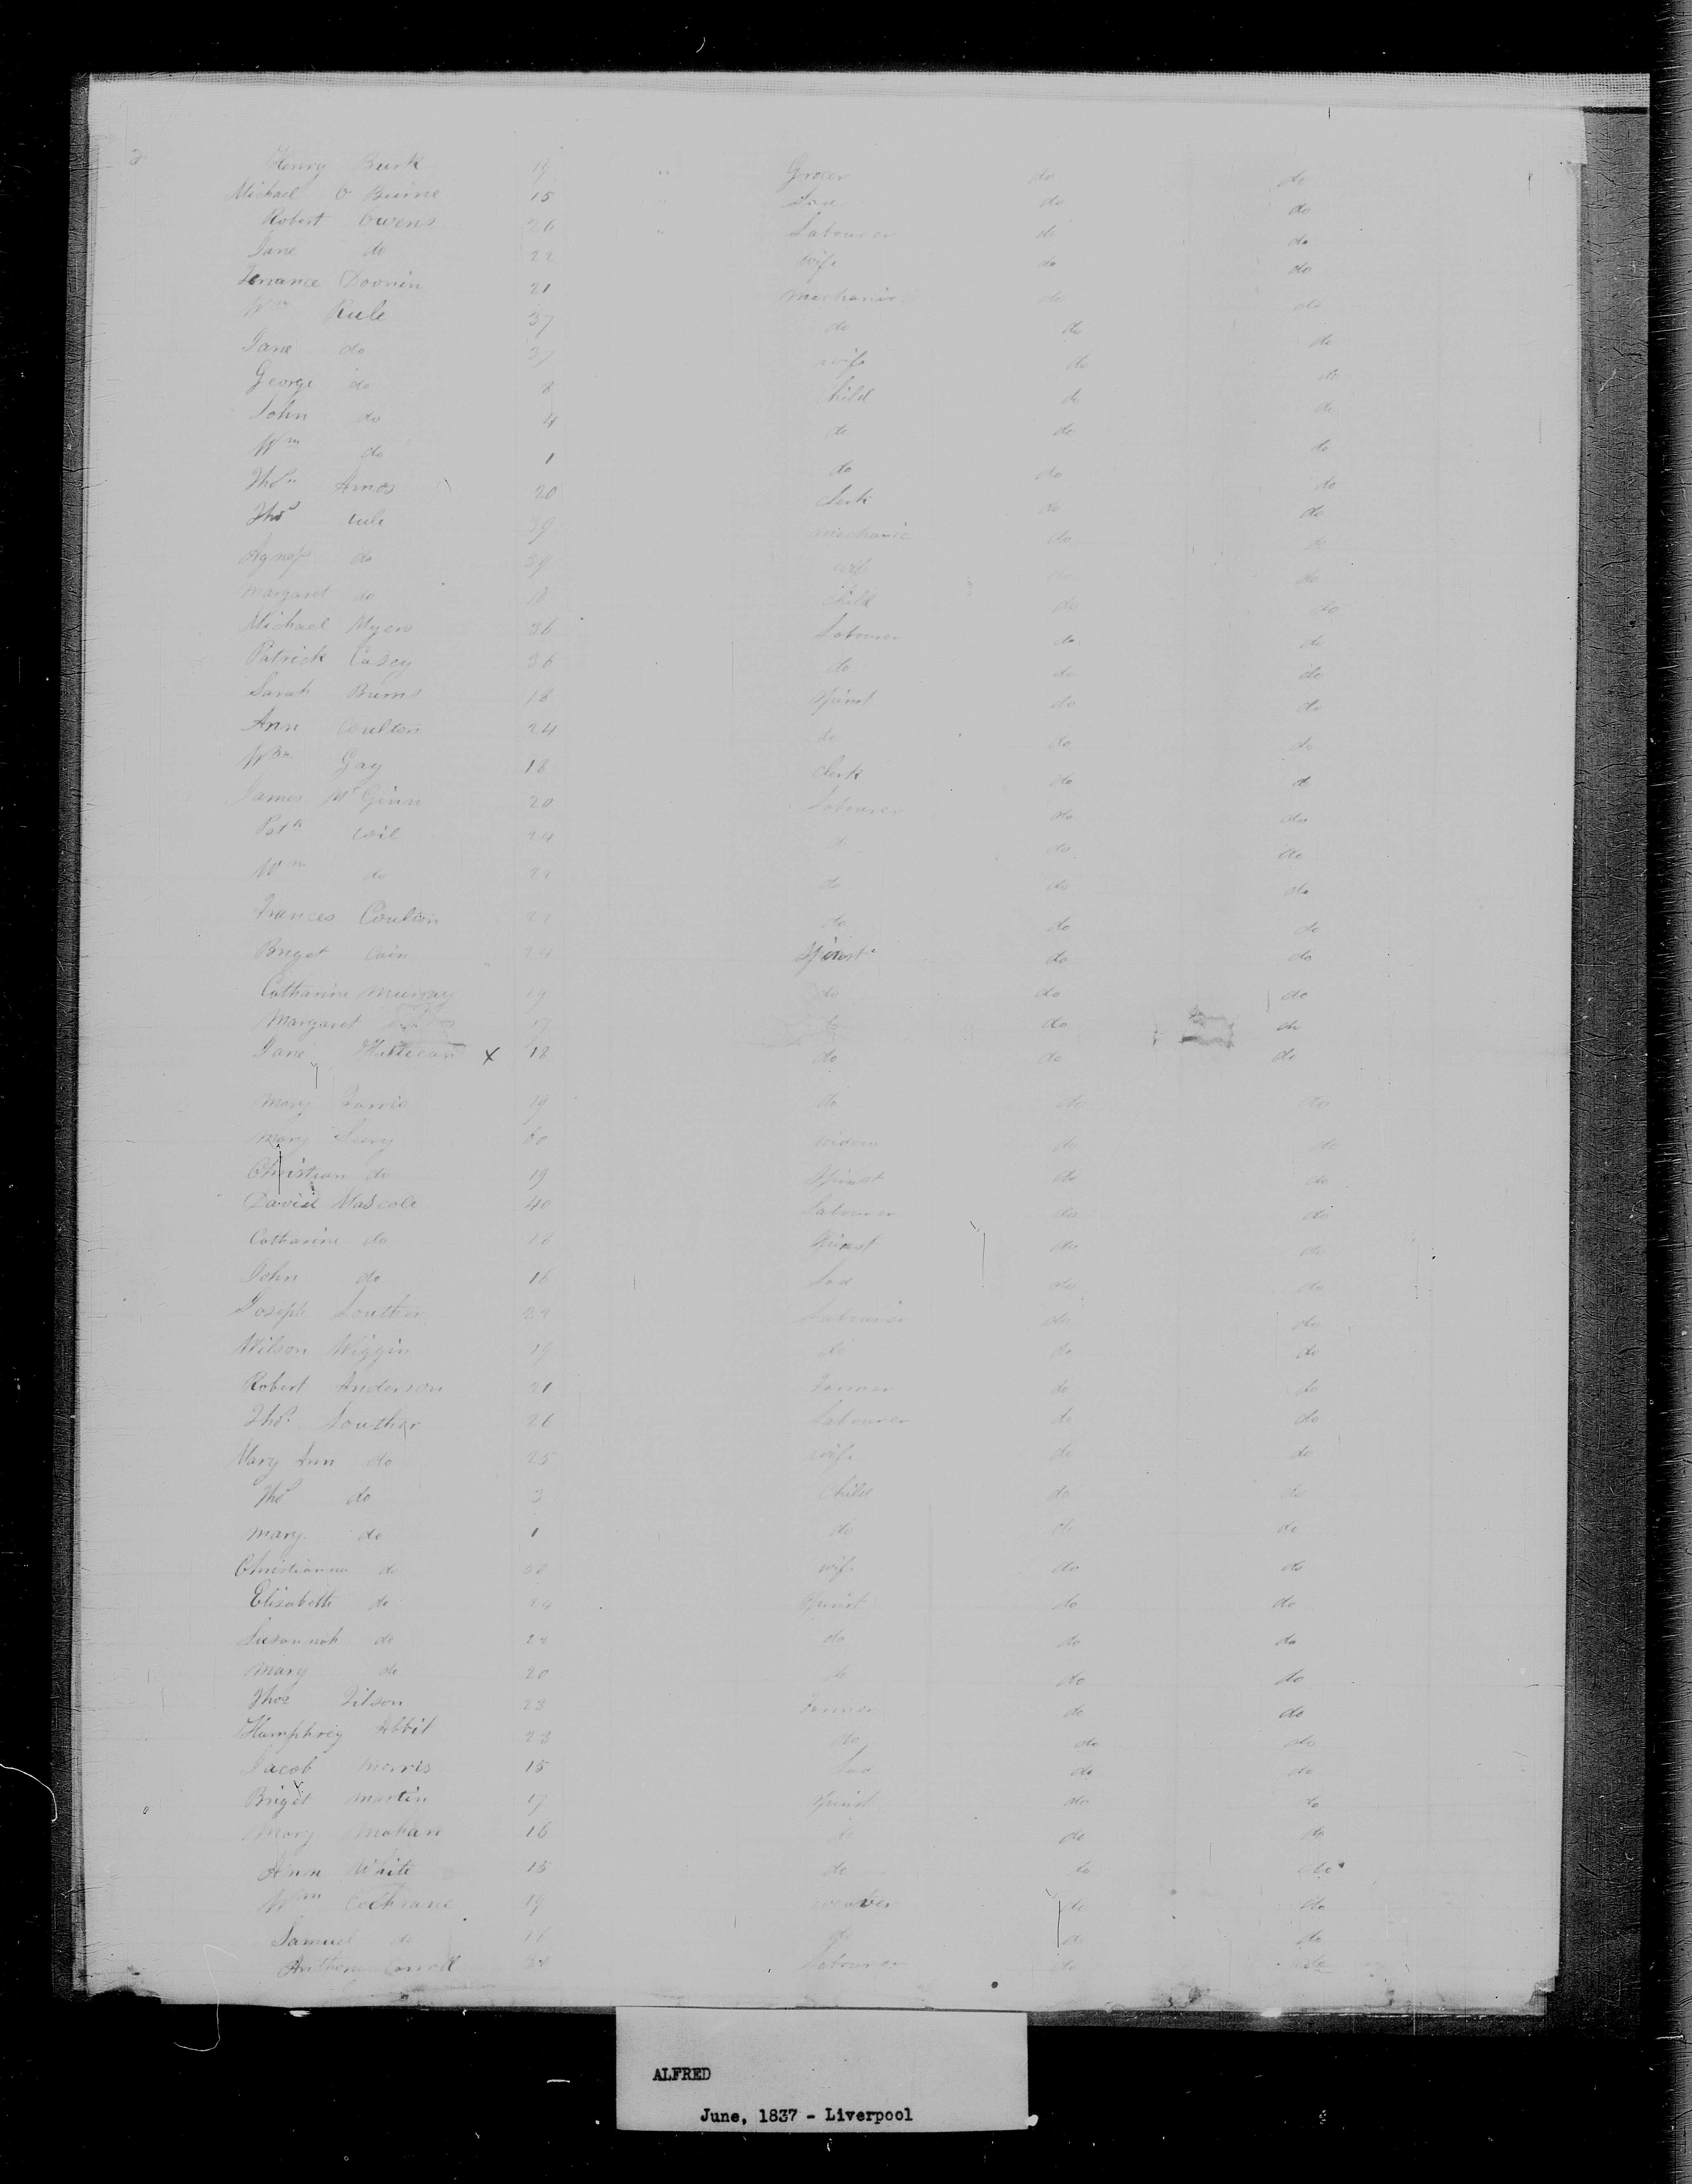 Henry Burk 19 " Grocer do do
Michael O Beirne 15 " Lad do do
Robert Owens 26 " Labourer do do
Jane do 22 wife do do
Terrance Doonin 21 mechanic do do
Wm Rule 37 do do do
Jane do 37 wife do do
George do 8 Child do do
John do 4 do do do
Wm do 1 do do do
Thos Amos 20 Clerk do do
Thos rule 39 mechanic do do
Agness do 39 wife do do
Margaret do 18 child do do
Michael Myers 36 Labourer do do
Patrick Casey 36 do do do
Sarah Burns 18 spinst do do
Ann Coulton 24 do do do
Wm Gay 18 Clerk do do
James McGinn 20 Labourer do do
Patk Coil 24 do do do
Wm do 22 do do do
Frances Coulton 22 do do do
Briget Cain 24 spinst do do
Catharine Murray 19 do do do
Margaret 17 do do do
Jane x 18 do do do
Mary 19 do do do
Mary 60 widow do do
Christian do 19 spinst do do
David Mascole 40 Labourer do do
Catharine do 18 spinst do do
John do 16 Lad do do
Joseph Louther 22 Labourer do do
Wilson Wiggin 19 do do do
Robert Anderson 21 Farmer do do
Thos Louther 26 Labourer do do
Mary Ann do 25 wife do do
Thos do 3 Child do do
Mary do 1 do do do
Christianna do 50 wife do do
Elisabeth do 24 spinst do do
Susannah do 22 do do do
Mary do 20 do do do
Thos Tilson 23 Farmer do do
Humphrey Abbit 23 do do do
Jacob Morris 15 Lad do do
Briget Martin 17 spinst do do
Mary Mahan 16 do do do
Ann White 15 do do do
Wm Cochrane 19 weaver do do
Samuel do 16 do do do
Anthony Carroll 30 Labourer do do
ALFRED
June, 1837 - Liverpool